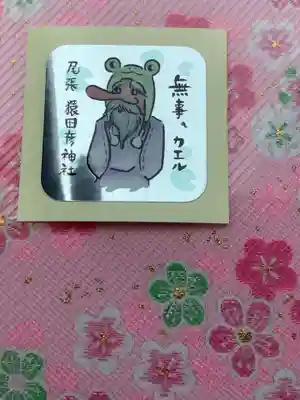 無事、カエル
尾張 猿田彦神社